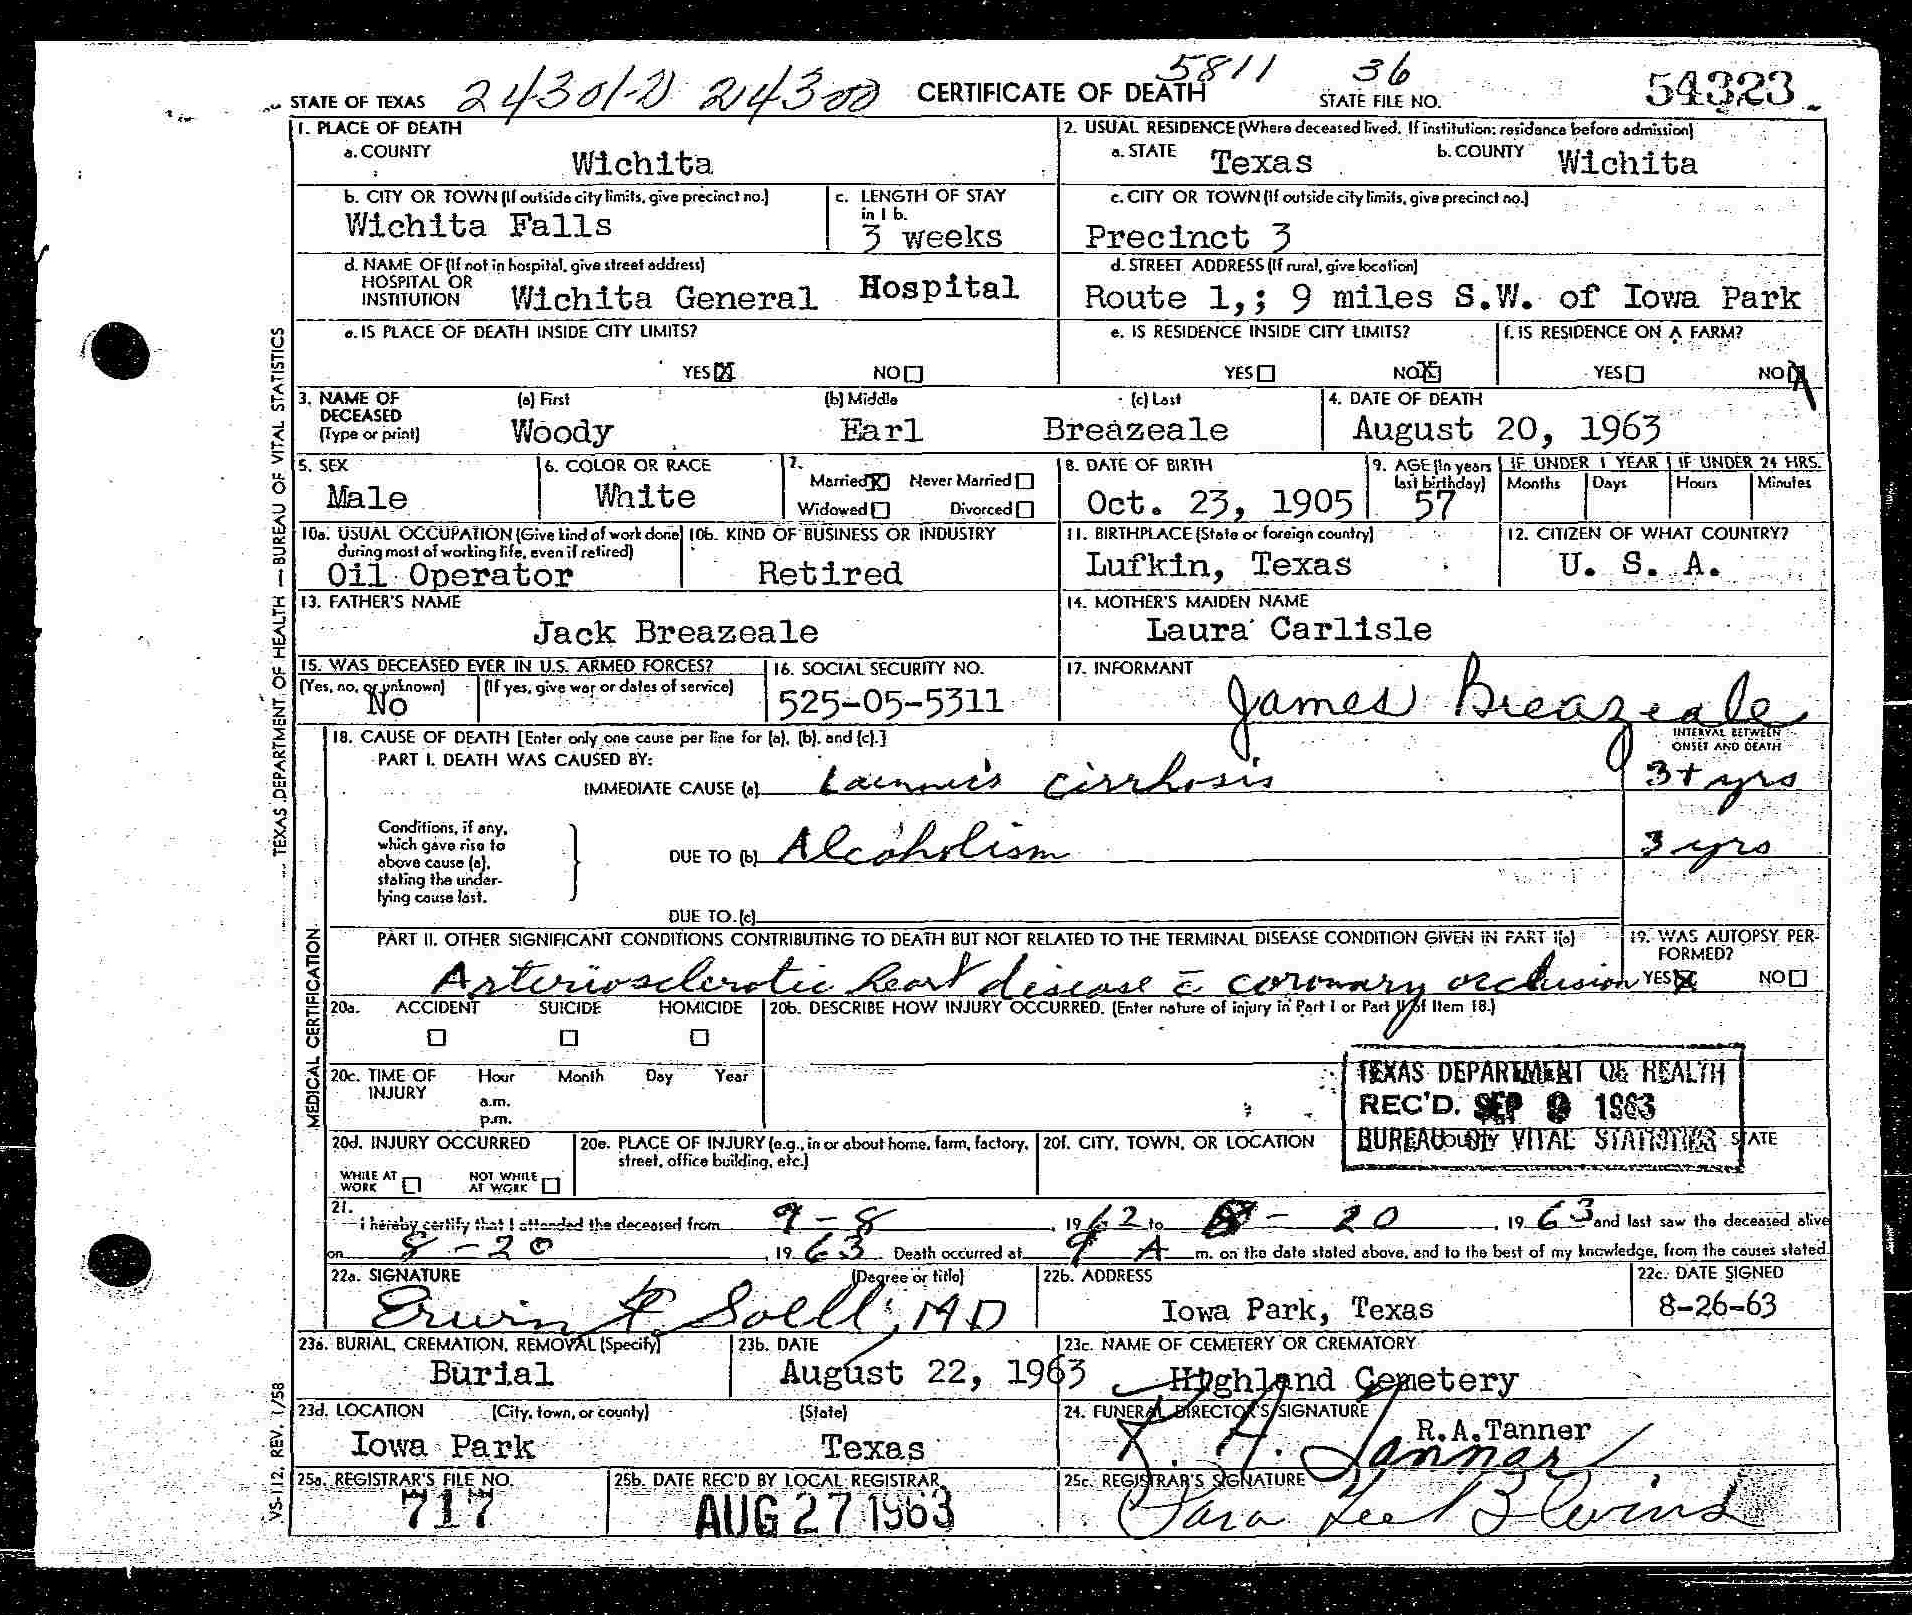 STATE OF TEXAS 24301-D 24300 CERTIFICATE OF DEATH 5811 36 STATE FILE NO. 54323
1. PLACE OF DEATH
a. COUNTY Wichita
2. USUAL RESIDENCE (Where deceased lived. If institution: residence before admission)
a. STATE Texas b. COUNTY Wichita
b. CITY OR TOWN (If outside city limits, give precinct no.)
Wichita Falls
c. LENGTH OF STAY in 1 b.
3 weeks
c. CITY OR TOWN (If outside city limits, give precinct no.)
Precinct 3
d. NAME OF (If not in hospital, give street address)
HOSPITAL OR
INSTITUTION Wichita General Hospital
d. STREET ADDRESS (If rural, give location)
Route 1,; 9 miles S.W. of Iowa Park
e. IS PLACE OF DEATH INSIDE CITY LIMITS?
YES X NO
e. IS RESIDENCE INSIDE CITY LIMITS?
YES NO X
f. IS RESIDENCE ON A FARM?
YES NO X
3. NAME OF DECEASED (Type or print)
(a) First (b) Middle (c) Last
Woody Earl Breazeale
4. DATE OF DEATH
August 20, 1963
5. SEX
Male
6. COLOR OR RACE
White
7.
Married X Never Married
Widowed Divorced
8. DATE OF BIRTH
Oct. 23, 1905
9. AGE (In years last birthday)
57
IF UNDER 1 YEAR IF UNDER 24 HRS.
Months Days Hours Minutes
10a. USUAL OCCUPATION (Give kind of work done during most of working life, even if retired)
Oil Operator
10b. KIND OF BUSINESS OR INDUSTRY
Retired
11. BIRTHPLACE (State or foreign country)
Lufkin, Texas
12. CITIZEN OF WHAT COUNTRY?
U. S. A.
13. FATHER'S NAME
Jack Breazeale
14. MOTHER'S MAIDEN NAME
Laura Carlisle
15. WAS DECEASED EVER IN U.S. ARMED FORCES?
(Yes, no, or unknown) (If yes, give war or dates of service)
No
16. SOCIAL SECURITY NO.
525-05-5311
17. INFORMANT
James Breazeale
18. CAUSE OF DEATH [Enter only one cause per line for (a), (b), and (c).]
INTERVAL BETWEEN ONSET AND DEATH
PART I. DEATH WAS CAUSED BY:
IMMEDIATE CAUSE (a) Laennec's cirrhosis 3+ yrs
Conditions, if any, which gave rise to above cause (a), stating the underlying cause last.
DUE TO (b) Alcoholism 3 yrs
DUE TO (c)
PART II. OTHER SIGNIFICANT CONDITIONS CONTRIBUTING TO DEATH BUT NOT RELATED TO THE TERMINAL DISEASE CONDITION GIVEN IN PART I(a)
Arteriosclerotic heart disease c̄ coronary occlusion
19. WAS AUTOPSY PERFORMED?
YES X NO
20a. ACCIDENT SUICIDE HOMICIDE
20b. DESCRIBE HOW INJURY OCCURRED. (Enter nature of injury in Part I or Part II of Item 18.)
20c. TIME OF INJURY Hour Month Day Year
a.m.
p.m.
TEXAS DEPARTMENT OF HEALTH
REC'D. SEP 9 1963
BUREAU OF VITAL STATISTICS
20d. INJURY OCCURRED
WHILE AT WORK NOT WHILE AT WORK
20e. PLACE OF INJURY (e.g., in or about home, farm, factory, street, office building, etc.)
20f. CITY, TOWN, OR LOCATION COUNTY STATE
21.
I hereby certify that I attended the deceased from 9-8, 1962 to 8-20, 1963 and last saw the deceased alive
on 8-20, 1963. Death occurred at 9 A m. on the date stated above, and to the best of my knowledge, from the causes stated.
22a. SIGNATURE (Degree or title)
Erwin F. Soell, MD
22b. ADDRESS
Iowa Park, Texas
22c. DATE SIGNED
8-26-63
23a. BURIAL, CREMATION, REMOVAL (Specify)
Burial
23b. DATE
August 22, 1963
23c. NAME OF CEMETERY OR CREMATORY
Highland Cemetery
23d. LOCATION (City, town, or county) (State)
Iowa Park Texas
24. FUNERAL DIRECTOR'S SIGNATURE
R.A.Tanner
R. A. Tanner
25a. REGISTRAR'S FILE NO.
717
25b. DATE REC'D BY LOCAL REGISTRAR
AUG 27 1963
25c. REGISTRAR'S SIGNATURE
Sara Lee Blevins
TEXAS DEPARTMENT OF HEALTH — BUREAU OF VITAL STATISTICS
MEDICAL CERTIFICATION
VS-112, REV. 1/58